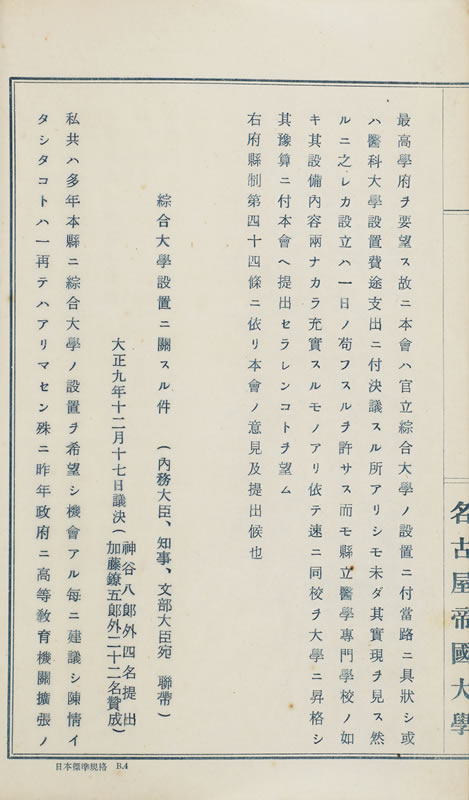 名古屋帝國大學
最高學府ヲ要望ス故ニ本會ハ官立綜合大學ノ設置ニ付當路ニ具狀シ或
ハ醫科大學設置費途支出ニ付決議スル所アリシモ未ダ其實現ヲ見ス然
ルニ之レカ設立ハ一日ノ苟フスルヲ許サス而モ縣立醫學專門學校ノ如
キ其設備內容兩ナカラ充實スルモノアリ依テ速ニ同校ヲ大學ニ昇格シ
其豫算ニ付本會ヘ提出セラレンコトヲ望ム
右府縣制第四十四條ニ依リ本會ノ意見及提出候也
綜合大學設置ニ關スル件　(內務大臣、知事、文部大臣宛　聯帶)
大正九年十二月十七日議決(神谷八郞外四名提出
加藤鐐五郞外二十二名贊成)
私共ハ多年本縣ニ綜合大學ノ設置ヲ希望シ機會アル每ニ建議シ陳情イ
タシタコトハ一再テハアリマセン殊ニ昨年政府ニ高等敎育機關擴張ノ
日本標準規格 B.4